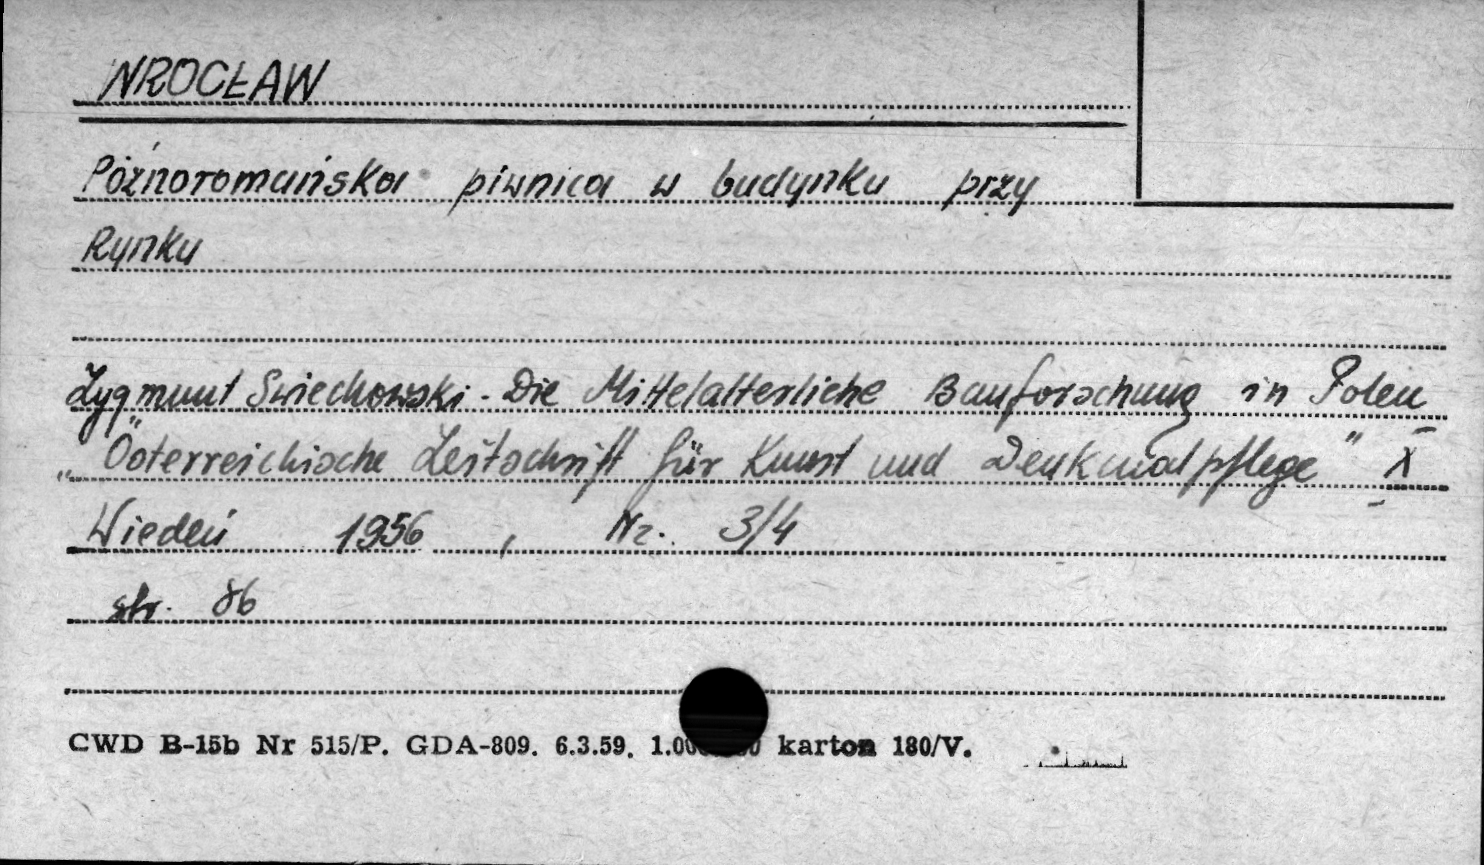 WROCŁAW
Póżnoromańska piwnica w budynku przy
Rynku
Zygmunt Swiechowski - Die Mittelalterliche Bauforschung in Polen
„Österreichische Zeitschrift für Kunst und Denkmalpflege" X
Wiedeń 1956, Nr. 3/4
str. 86
CWD B-15b Nr 515/P. GDA-809. 6.3.59. karton 180/V.